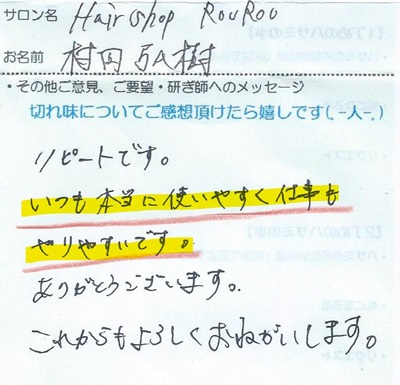 サロン名 Hair Shop RouRou
お名前 村田 弘樹
・その他ご意見、ご要望・研ぎ師へのメッセージ
切れ味についてご感想頂けたら嬉しです(。-人-。)
リピートです。
いつも本当に使いやすく仕事も
やりやすいです。
ありがとうございます。
これからもよろしくおねがいします。